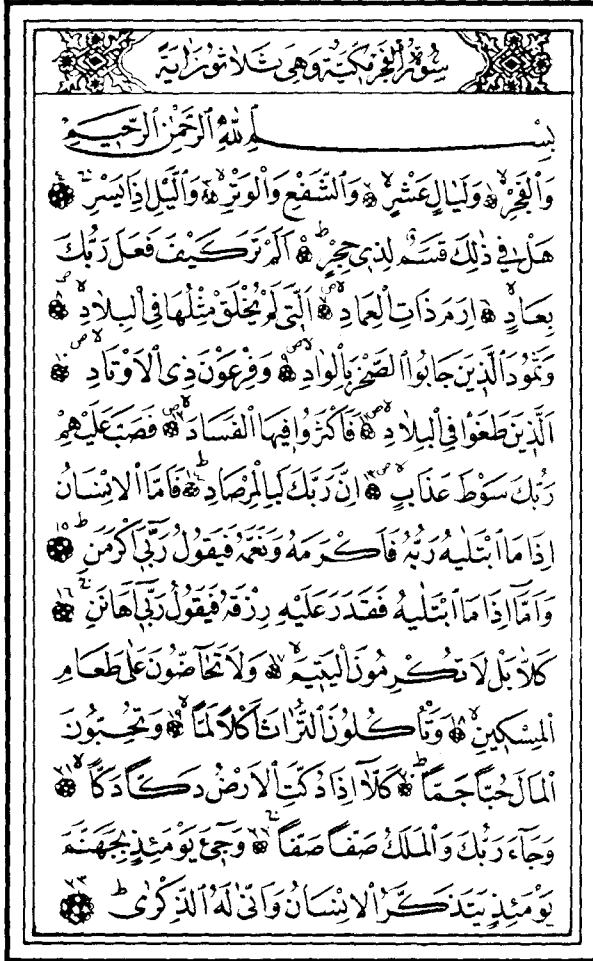 سُورَةُ الْفَجْرِ مَكِّيَّةٌ وَهِيَ ثَلَاثُونَ اٰيَةً
بِسْمِ اللّٰهِ الرَّحْمٰنِ الرَّحِيمِ
وَالْفَجْرِۙ وَلَيَالٍ عَشْرٍۙ وَالشَّفْعِ وَالْوَتْرِۙ وَالَّيْلِ اِذَا يَسْرِۚ ٤
هَلْ فٖي ذٰلِكَ قَسَمٌ لِذٖي حِجْرٍؕ اَلَمْ تَرَ كَيْفَ فَعَلَ رَبُّكَ
بِعَادٍۙ اِرَمَ ذَاتِ الْعِمَادِۙ اَلَّتٖي لَمْ يُخْلَقْ مِثْلُهَا فِي الْبِلَادِۙ ٨
وَثَمُودَ الَّذٖينَ جَابُوا الصَّخْرَ بِالْوَادِۙ وَفِرْعَوْنَ ذِي الْاَوْتَادِۙ ١٠
اَلَّذٖينَ طَغَوْا فِي الْبِلَادِۙ فَاَكْثَرُوا فٖيهَا الْفَسَادَۙ فَصَبَّ عَلَيْهِمْ
رَبُّكَ سَوْطَ عَذَابٍۙ ١٣ اِنَّ رَبَّكَ لَبِالْمِرْصَادِؕ ١٤ فَاَمَّا الْاِنْسَانُ
اِذَا مَا ابْتَلٰيهُ رَبُّهُ فَاَكْرَمَهُ وَنَعَّمَهُ فَيَقُولُ رَبّٖٓي اَكْرَمَنِؕ ١٥
وَاَمَّٓا اِذَا مَا ابْتَلٰيهُ فَقَدَرَ عَلَيْهِ رِزْقَهُ فَيَقُولُ رَبّٖٓي اَهَانَنِۚ ١٦
كَلَّا بَلْ لَا تُكْرِمُونَ الْيَتٖيمَۙ وَلَا تَحَٓاضُّونَ عَلٰى طَعَامِ
الْمِسْكٖينِۙ ١٨ وَتَأْكُلُونَ التُّرَاثَ اَكْلًا لَمًّاۙ ١٩ وَتُحِبُّونَ
الْمَالَ حُبًّا جَمًّاؕ كَلَّٓا اِذَا دُكَّتِ الْاَرْضُ دَكًّا دَكًّاۙ ٢١
وَجَٓاءَ رَبُّكَ وَالْمَلَكُ صَفًّا صَفًّاۚ وَجٖٓيءَ يَوْمَئِذٍ بِجَهَنَّمَ
يَوْمَئِذٍ يَتَذَكَّرُ الْاِنْسَانُ وَاَنّٰى لَهُ الذِّكْرٰىؕ ٢٣